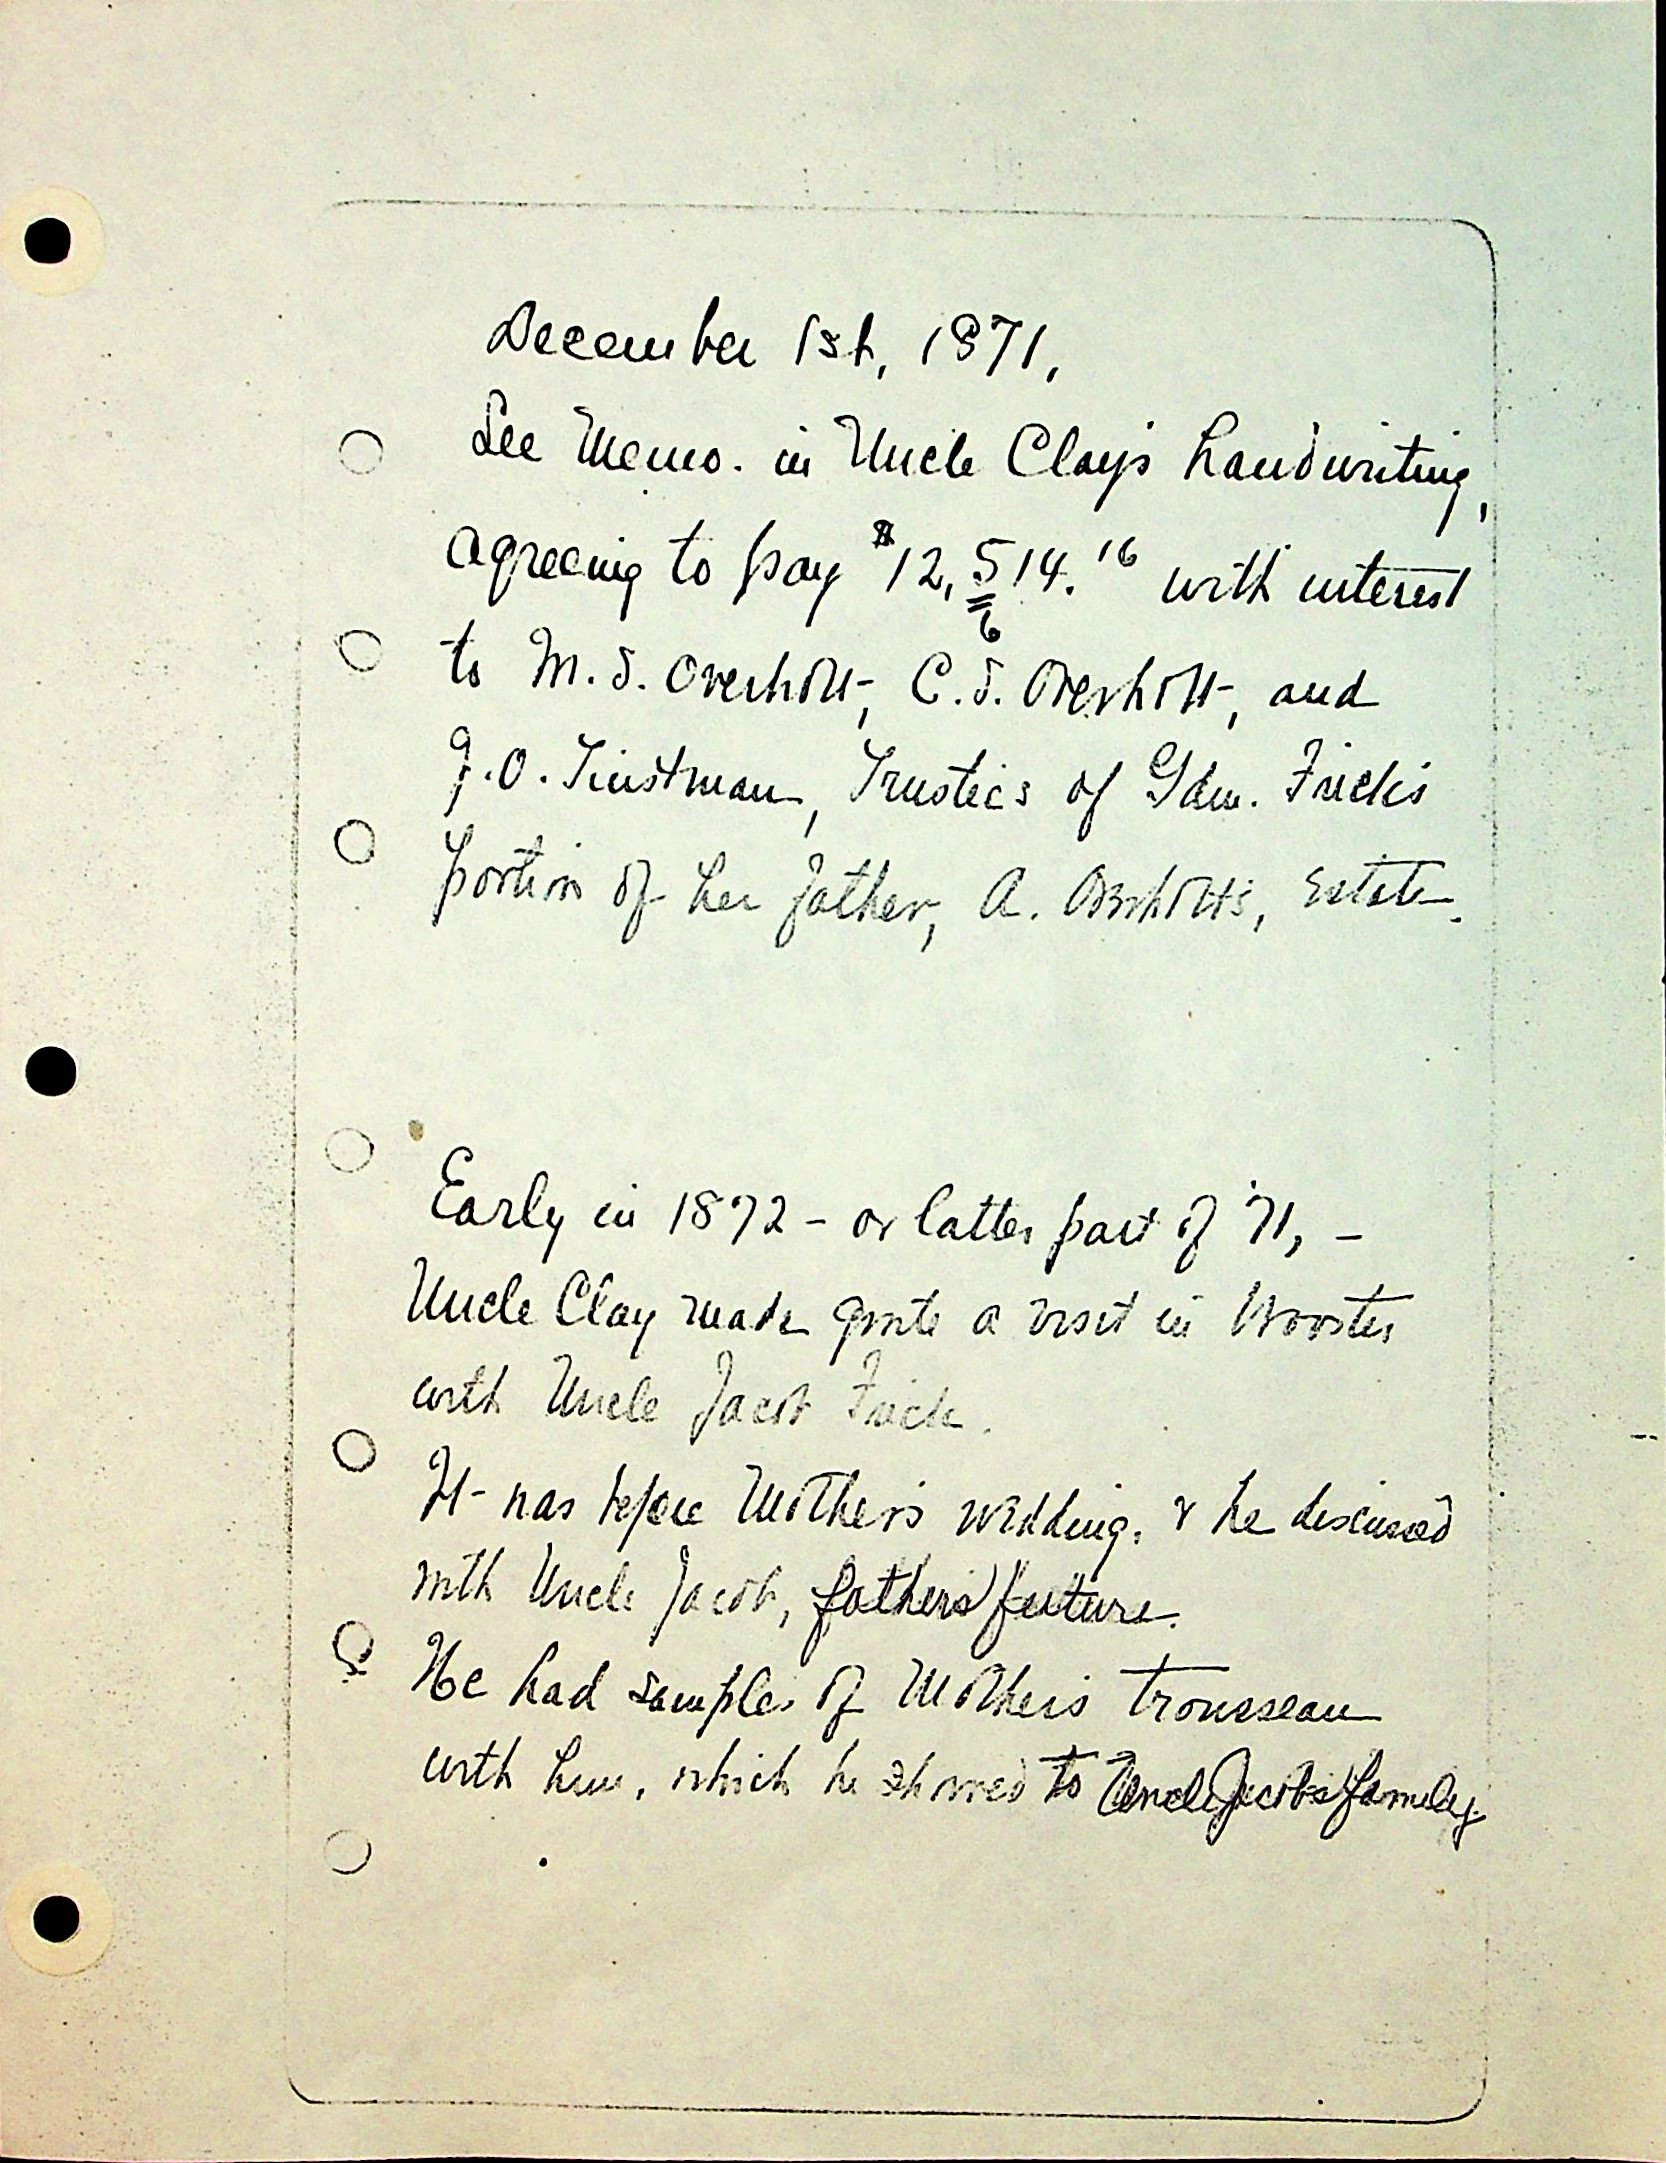 December 1st, 1871,
See Memo. in Uncle Clay's handwriting,
agreeing to pay $12,514.16 with interest
6
to M.S. Overholt, C.S. Overholt, and
J.O. Tinstman, Trustees of Gdm. Frick's
portion of her father, A. Overholt's, Estate.
Early in 1872 - or latter part of '71, -
Uncle Clay made quite a visit in Wooster
with Uncle Jacob Frick.
It was before Mother's wedding. & he discussed
with Uncle Jacob, father's future.
He had samples of Mother's trousseau
with him, which he showed to Uncle Jacob's family.